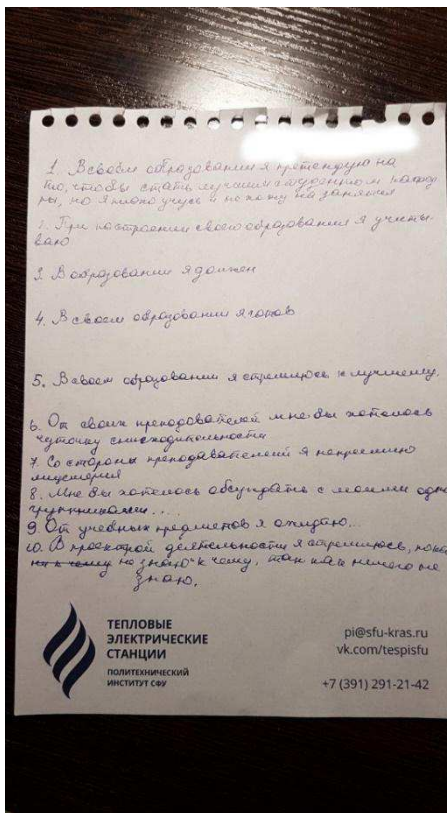 1. В своём образовании я претендую на
то, чтобы стать лучшим студентом кафед
ры, но я плохо учусь и не хожу на занятия
При построении своего образования я учиты
ваю
3. В образовании я должен
4. В своем образовании я готов
5. В своем образовании я стремлюсь к лучшему.
6. От своих преподавателей мне бы хотелось
чуточку снисходительности
7. Со стороны преподавателей я неприемлю
8. Мне бы хотелось обсуждать с моими одно
группниками.....
9. От учебных предметов я ожидаю...
10. В проектной деятельности я стремлюсь, пока
ни к чему не знаю к чему, так как ничего не
знаю.
ТЕПЛОВЫЕ
ЭЛЕКТРИЧЕСКИЕ
СТАНЦИИ
ПОЛИТЕХНИЧЕСКИЙ
ИНСТИТУТ СФУ
pi@sfu-kras.ru
vk.com/tespisfu
+7 (391) 291-21-42